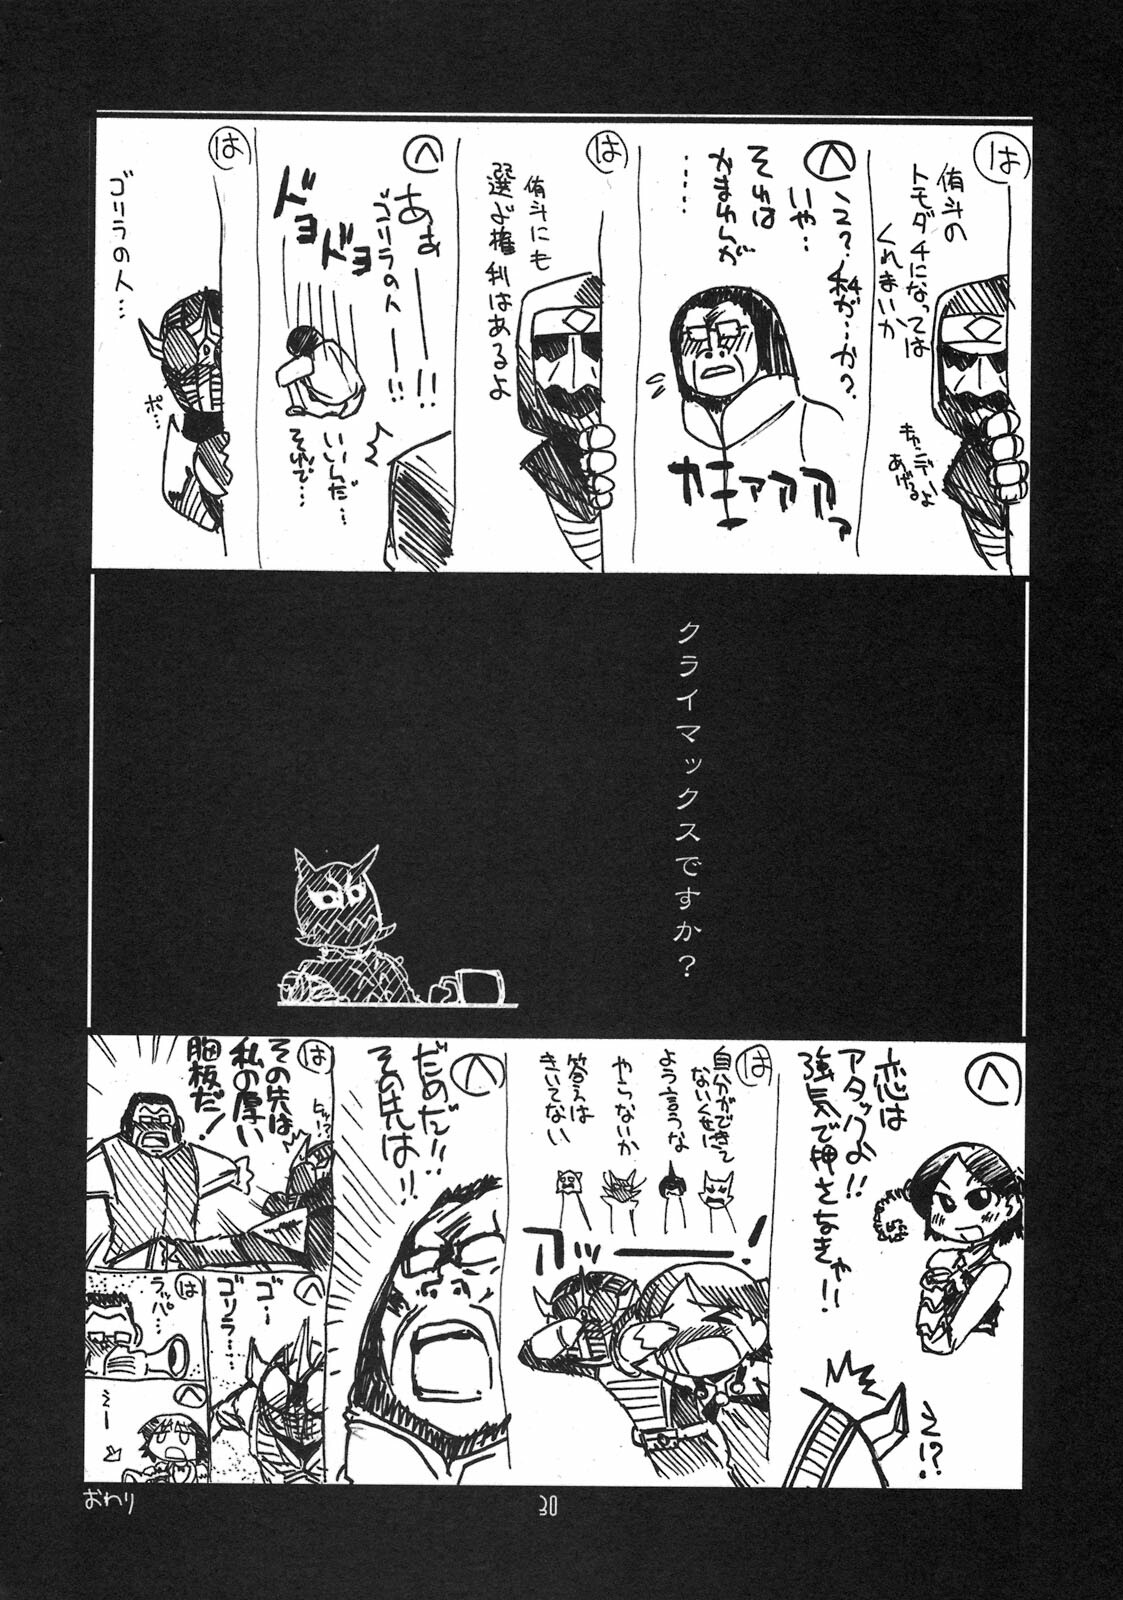 は
侑斗の
トモダチになっては
くれまいか
キャンディーよ
あげる
へ
え?私が…か?
いや…
それは
かまわんが
……
カァァァァッ
は
侑斗にも
選ぶ権利はあるよ
へ
あぁーーー!!
ゴリラの人ーー!!
ドヨドヨ
いいんだ…
それで…
は
ゴリラの人…
ポ…
クライマックスですか?
へ
恋は
アタックよ!!
強気で押さなきゃー!
え!?
は
自分ができて
ないくせに
よう言うな
やらないか
答えは
きいてない
アッーー!
へ
だめだ!!
その先は!!
は
その先は
私の厚い
胸板だ!
ヒッ!?
へ
ゴー
ゴリラ……
は
ラッパ…
へ
えー
おわり
30